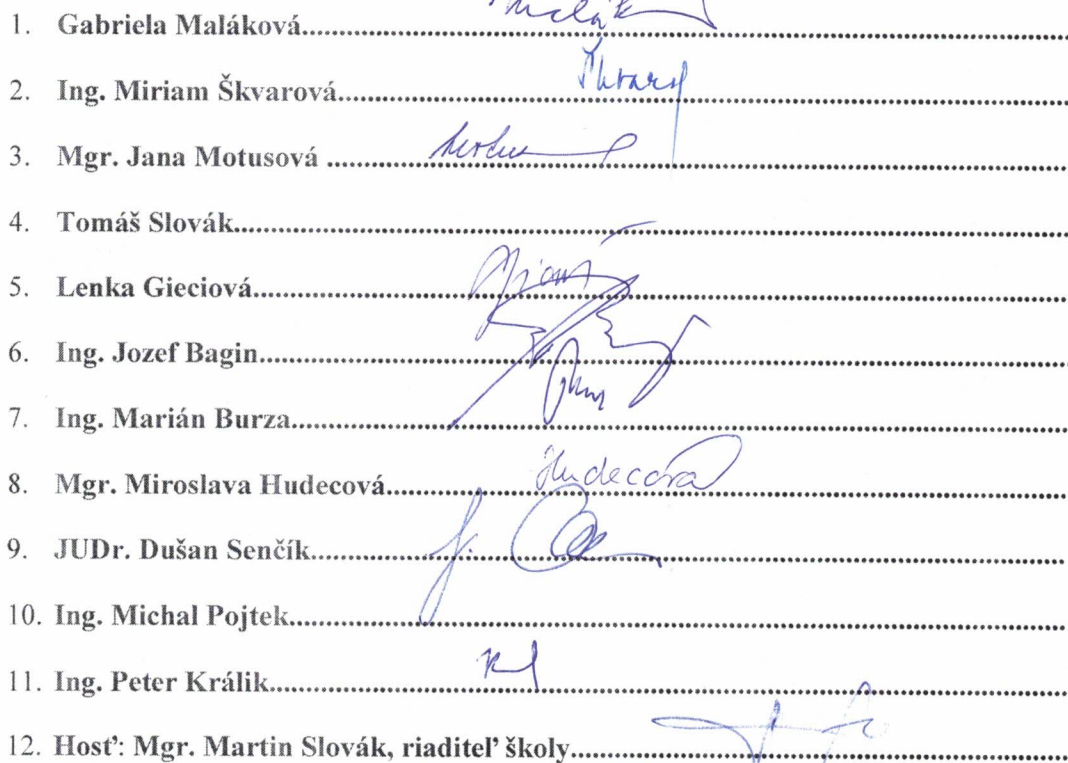 1. Gabriela Maláková
2. Ing. Miriam Škvarová
3. Mgr. Jana Motusová
4. Tomáš Slovák
5. Lenka Gieciová
6. Ing. Jozef Bagin
7. Ing. Marián Burza
8. Mgr. Miroslava Hudecová Hudecová
9. JUDr. Dušan Senčík
10. Ing. Michal Pojtek
11. Ing. Peter Králik
12. Hosť: Mgr. Martin Slovák, riaditeľ školy